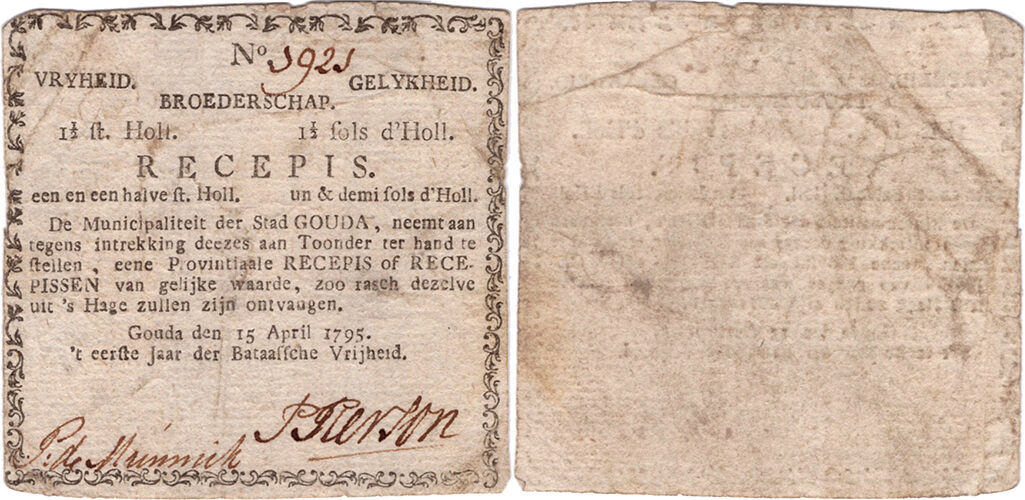 No 5921
VRYHEID. GELYKHEID.
BROEDERSCHAP.
1½ ſt. Holl. 1½ ſols d'Holl.
RECEPIS.
een en een halve ſt. Holl. un & demi ſols d'Holl.
De Municipaliteit der Stad GOUDA, neemt aan
tegens intrekking deezes aan Toonder ter hand te
ſtellen, eene Provintiaale RECEPIS of RECE-
PISSEN van gelijke waarde, zoo raſch dezelve
uit 's Hage zullen zijn ontvangen.
Gouda den 15 April 1795.
't eerſte Jaar der Bataafſche Vrijheid.
P. de